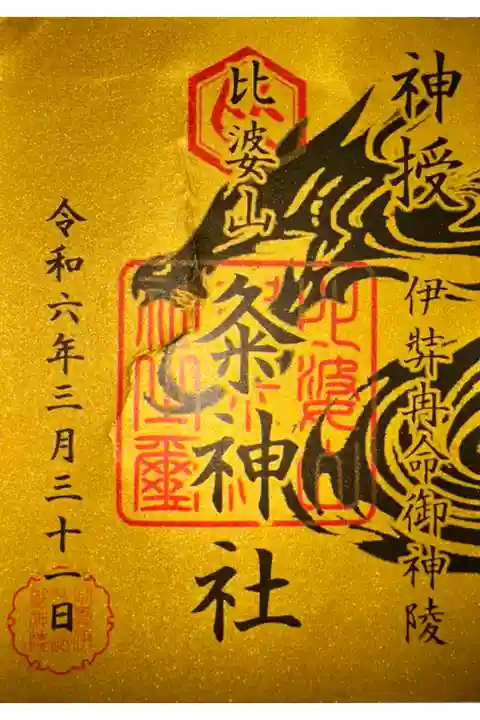 神授
伊弉冉命御神陵
比婆山
粂神社
令和六年三月三十一日